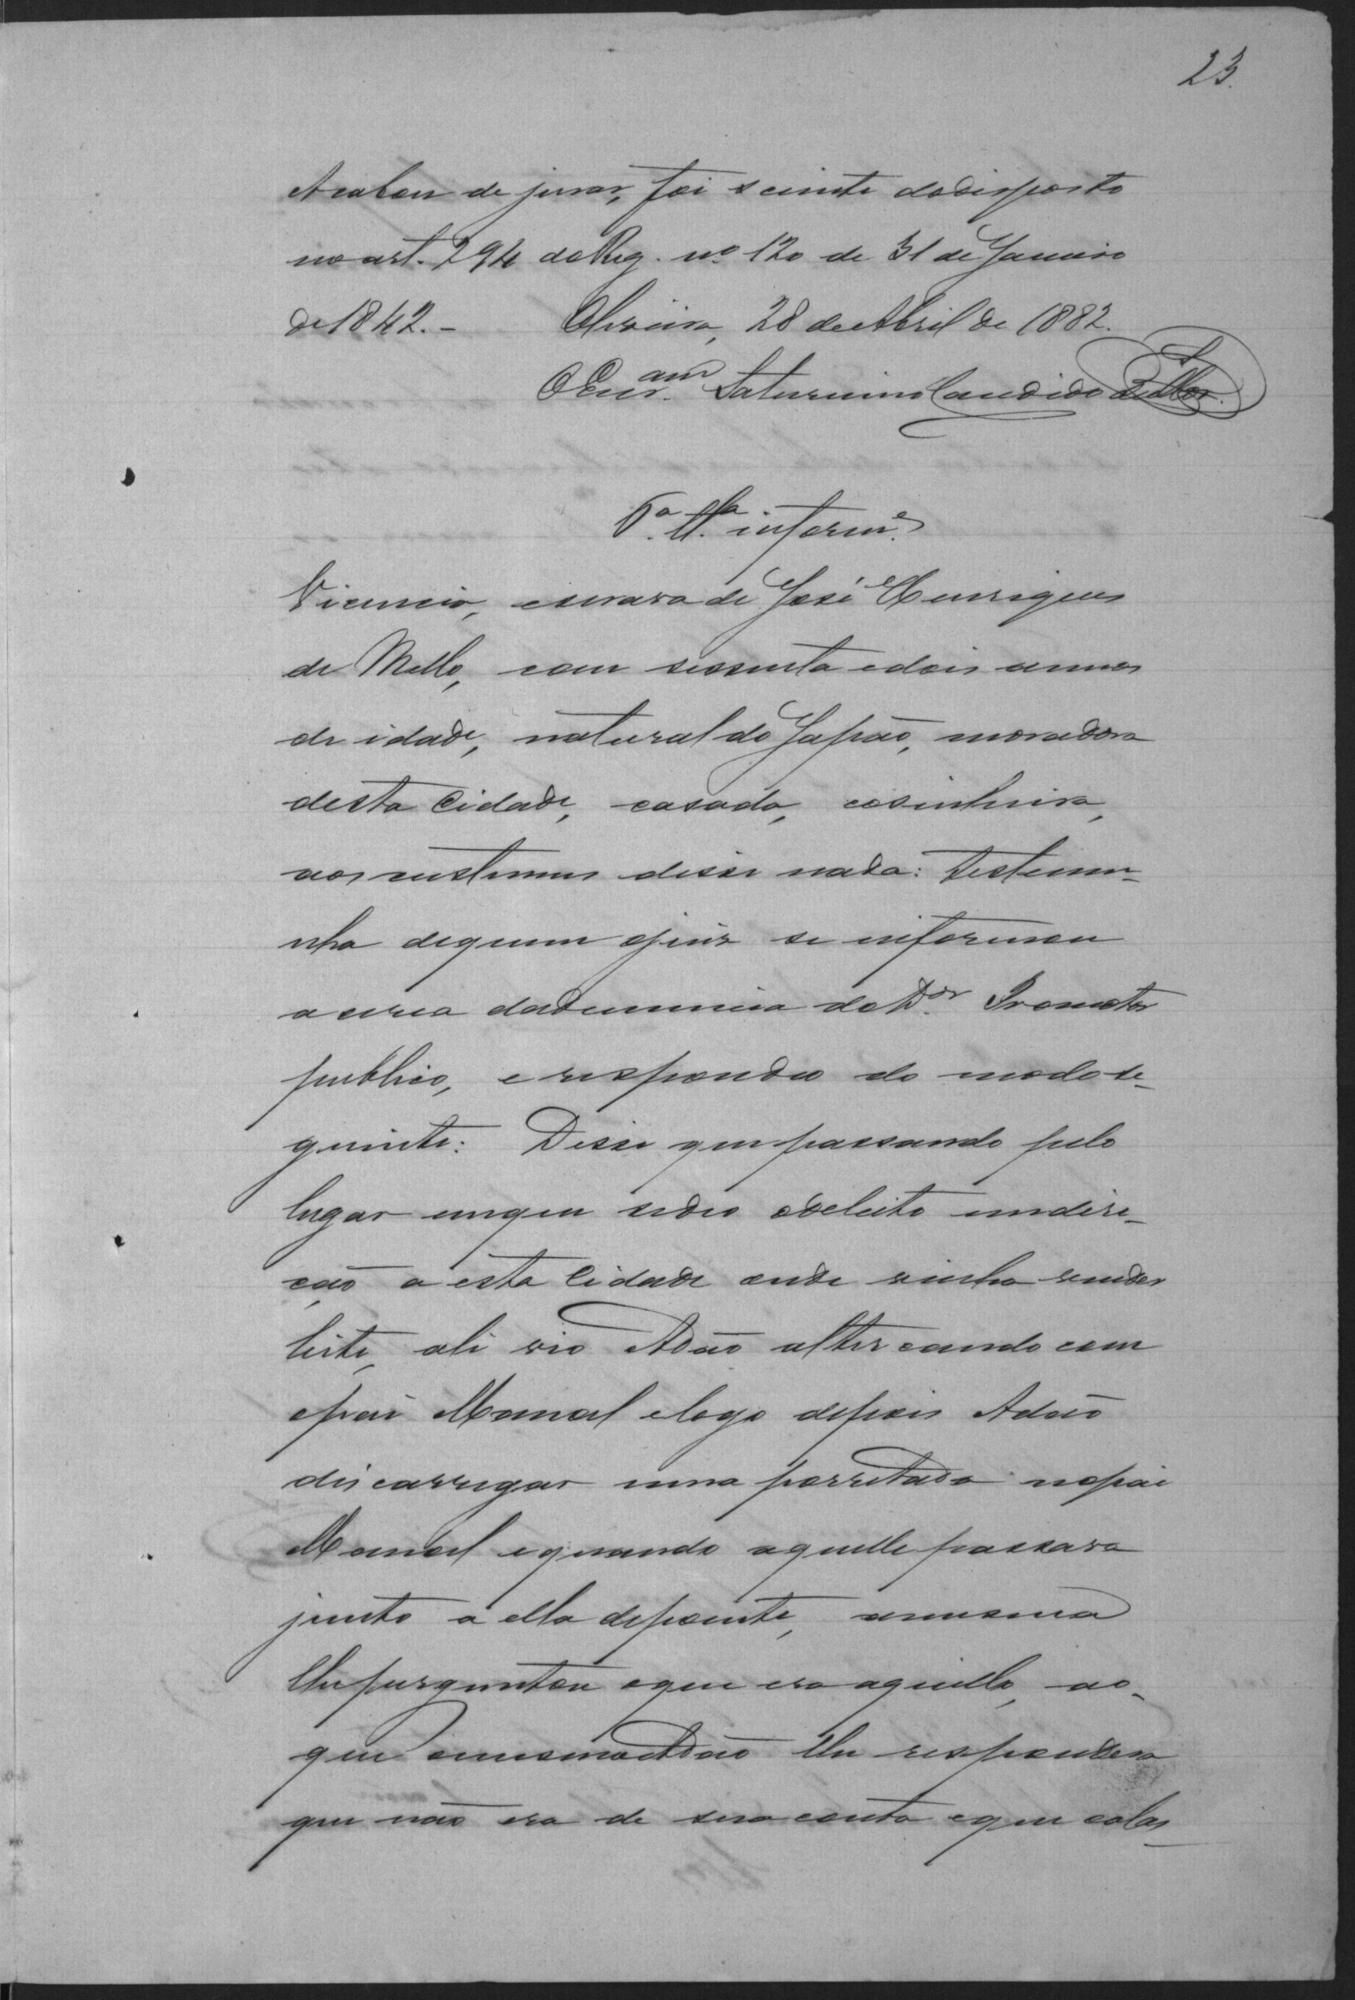 23.
Acabou de jurar, foi sciente do disposto
no art. 294 do Reg. nº 120 de 31 de Janeiro
de 1842. - Oliveira, 28 de Abril de 1882.
O Escr.am Saturnino Candido
5ª Tª inform.e
Vicencia, escrava de José Henriques
de Mello, com sessenta e dois annos
de idade, natural do Japão, moradora
desta Cidade, casada, cosinheira,
aos custumes disse nada: Testemu-
nha de quem o juiz se informou
acerca da denuncia do Dor. Promotor
publico, e respondeu do modo se-
guinte: Disse que passando pelo
lugar em que se deo o delicto em dire-
cção a esta Cidade onde vinha vender
leite, ali vio Adão altercando com
o pai Manoel e logo depois Adão
discarregar uma porretada no pai
Manoel e quando aquelle passava
junto a ella depoente, a mesma
lhe perguntou o que era aquillo, ao
que o mesmo Adão lhe respondera
que não era de sua conta e que calas-